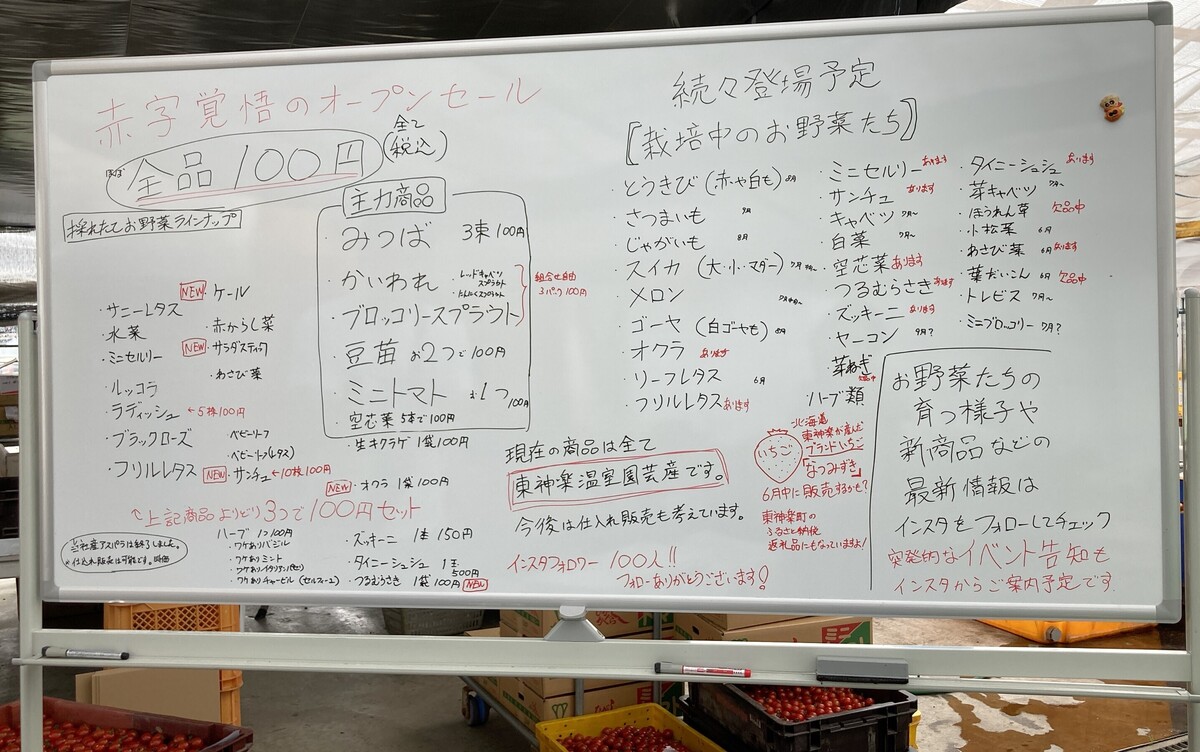 赤字覚悟のオープンセール
ほぼ 全品 100円
全て
(税込)
採れたてお野菜ラインナップ
主力商品
・みつば 3束100円
・かいわれ ・レッドキャベツスプラウト
・ブロッコリースプラウト
組合せ自由
3パック100円
・豆苗 お2つで100円
・ミニトマト お1つ100円
空芯菜 5本で100円
・生キクラゲ 1袋100円
NEW ・ケール
・サニーレタス
・水菜 ・赤からし菜
・ミニセルリー NEW ・サラダスティック
・わさび菜
・ルッコラ
・ラディッシュ ←5株100円
・ブラックローズ ・ベビーリーフ
・ベビーリーフ(レタス)
・フリルレタス NEW ・サンチュ ←10株100円
NEW ・オクラ 1袋100円
↑上記商品よりどり3つで100円セット
当社産アスパラは終了しました。
※仕入れ販売は可能です。時価
ハーブ 1つ100円
・ワケありバジル
・ワケありミント
・ワケありイタリアン(パセリ)
・ワケありチャービル(セルフィーユ)
・ズッキーニ 1本150円
・タイニーシュシュ 1玉500円
・つるむらさき 1袋100円 NEW
続々登場予定
[栽培中のお野菜たち]
・とうきび(赤や白も) 8月
・さつまいも 9月
・じゃがいも 8月
・スイカ (大・小・マダー)
・メロン
・ゴーヤ (白ゴーヤも)
・オクラ あります
・リーフレタス 6月
・フリルレタス あります
・ミニセルリー あります
・サンチュ あります
・キャベツ 7月〜
・白菜 7月〜
・空芯菜 あります
・つるむらさき あります
・ズッキーニ あります
・ヤーコン 9月?
・芽ねぎ 欠品中
・ハーブ類
・タイニーシュシュ あります
・芽キャベツ 7月〜
・ほうれん草 欠品中
・小松菜 6月
・わさび菜 6月 あります
・葉だいこん 6月 欠品中
・トレビス 7月〜
・ミニブロッコリー 7月?
現在の商品は全て
東神楽温室園芸産です。
今後は仕入れ販売も考えています。
インスタフォロワー 100人!!
フォローありがとうございます!
いちご
北海道
東神楽が産んだ
ブランドいちご
「なつみずき」
6月中に販売するかも?
東神楽町の
ふるさと納税
返礼品にもなっていますよ!
お野菜たちの
育つ様子や
新商品などの
最新情報は
インスタをフォローしてチェック
突発的なイベント告知も
インスタからご案内予定です